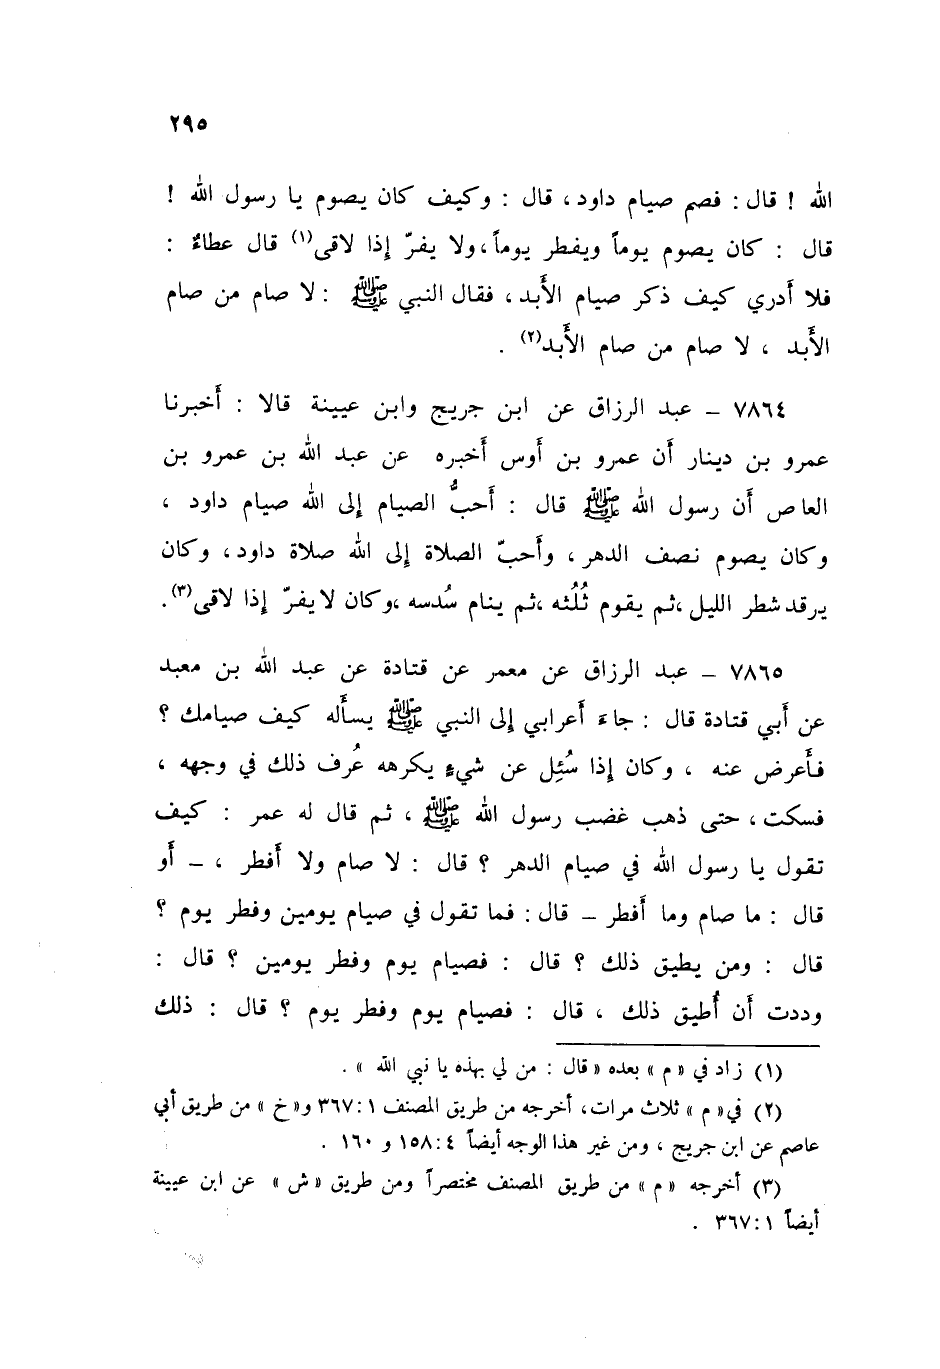 ٢٩٥
الله ! قال : فصم صيام داود ، قال : وكيف كان يصوم يا رسول الله !
قال : كان يصوم يوماً ويفطر يوماً ، ولا يفرّ إذا لاقى(١) قال عطاءٌ :
فلا أَدري كيف ذكر صيام الأَبد ، فقال النبي ﷺ : لا صام من صام
الأَبد ، لا صام من صام الأَبد(٢) .
٧٨٦٤ – عبد الرزاق عن ابن جريج وابن عيينة قالا : أَخبرنا
عمرو بن دينار أَن عمرو بن أَوس أَخبره عن عبد الله بن عمرو بن
العاص أَن رسول الله ﷺ قال : أَحبُّ الصيام إلى الله صيام داود ،
وكان يصوم نصف الدهر ، وأَحبّ الصلاة إلى الله صلاة داود ، وكان
يرقد شطر الليل ، ثم يقوم ثُلُثه ، ثم ينام سُدسه ، وكان لا يفرّ إذا لاقى(٣) .
٧٨٦٥ – عبد الرزاق عن معمر عن قتادة عن عبد الله بن معبد
عن أَبي قتادة قال : جاءَ أَعرابي إلى النبي ﷺ يسأَله كيف صيامك ؟
فأَعرض عنه ، وكان إذا سُئِل عن شيءٍ يكرهه عُرف ذلك في وجهه ،
فسكت ، حتى ذهب غضب رسول الله ﷺ ، ثم قال له عمر : كيف
تقول يا رسول الله في صيام الدهر ؟ قال : لا صام ولا أَفطر ، – أَو
قال : ما صام وما أَفطر – قال : فما تقول في صيام يومين وفطر يوم ؟
قال : ومن يطيق ذلك ؟ قال : فصيام يوم وفطر يومين ؟ قال :
وددت أَن أُطيق ذلك ، قال : فصيام يوم وفطر يوم ؟ قال : ذلك
(١) زاد في « م » بعده « قال : من لي بهذه يا نبي الله » .
(٢) في « م » ثلاث مرات ، أخرجه من طريق المصنف ١ : ٣٦٧ و « خ » من طريق أبي
عاصم عن ابن جريج ، ومن غير هذا الوجه أيضاً ٤ : ١٥٨ و ١٦٠ .
(٣) أخرجه « م » من طريق المصنف مختصراً ومن طريق « ش » عن ابن عيينة
أيضاً ١ : ٣٦٧ .